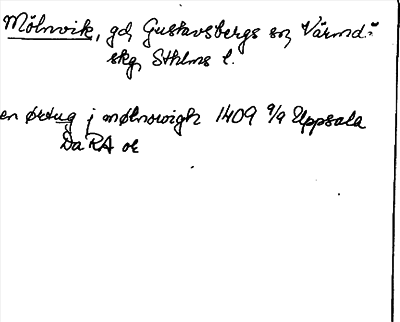 Mölnvik, gd, Gustavsbergs sn, Värmd:ö
skg, Sthlms l.
en ørtug j mølnowigh 1409 9/9 Uppsala
DaRA or